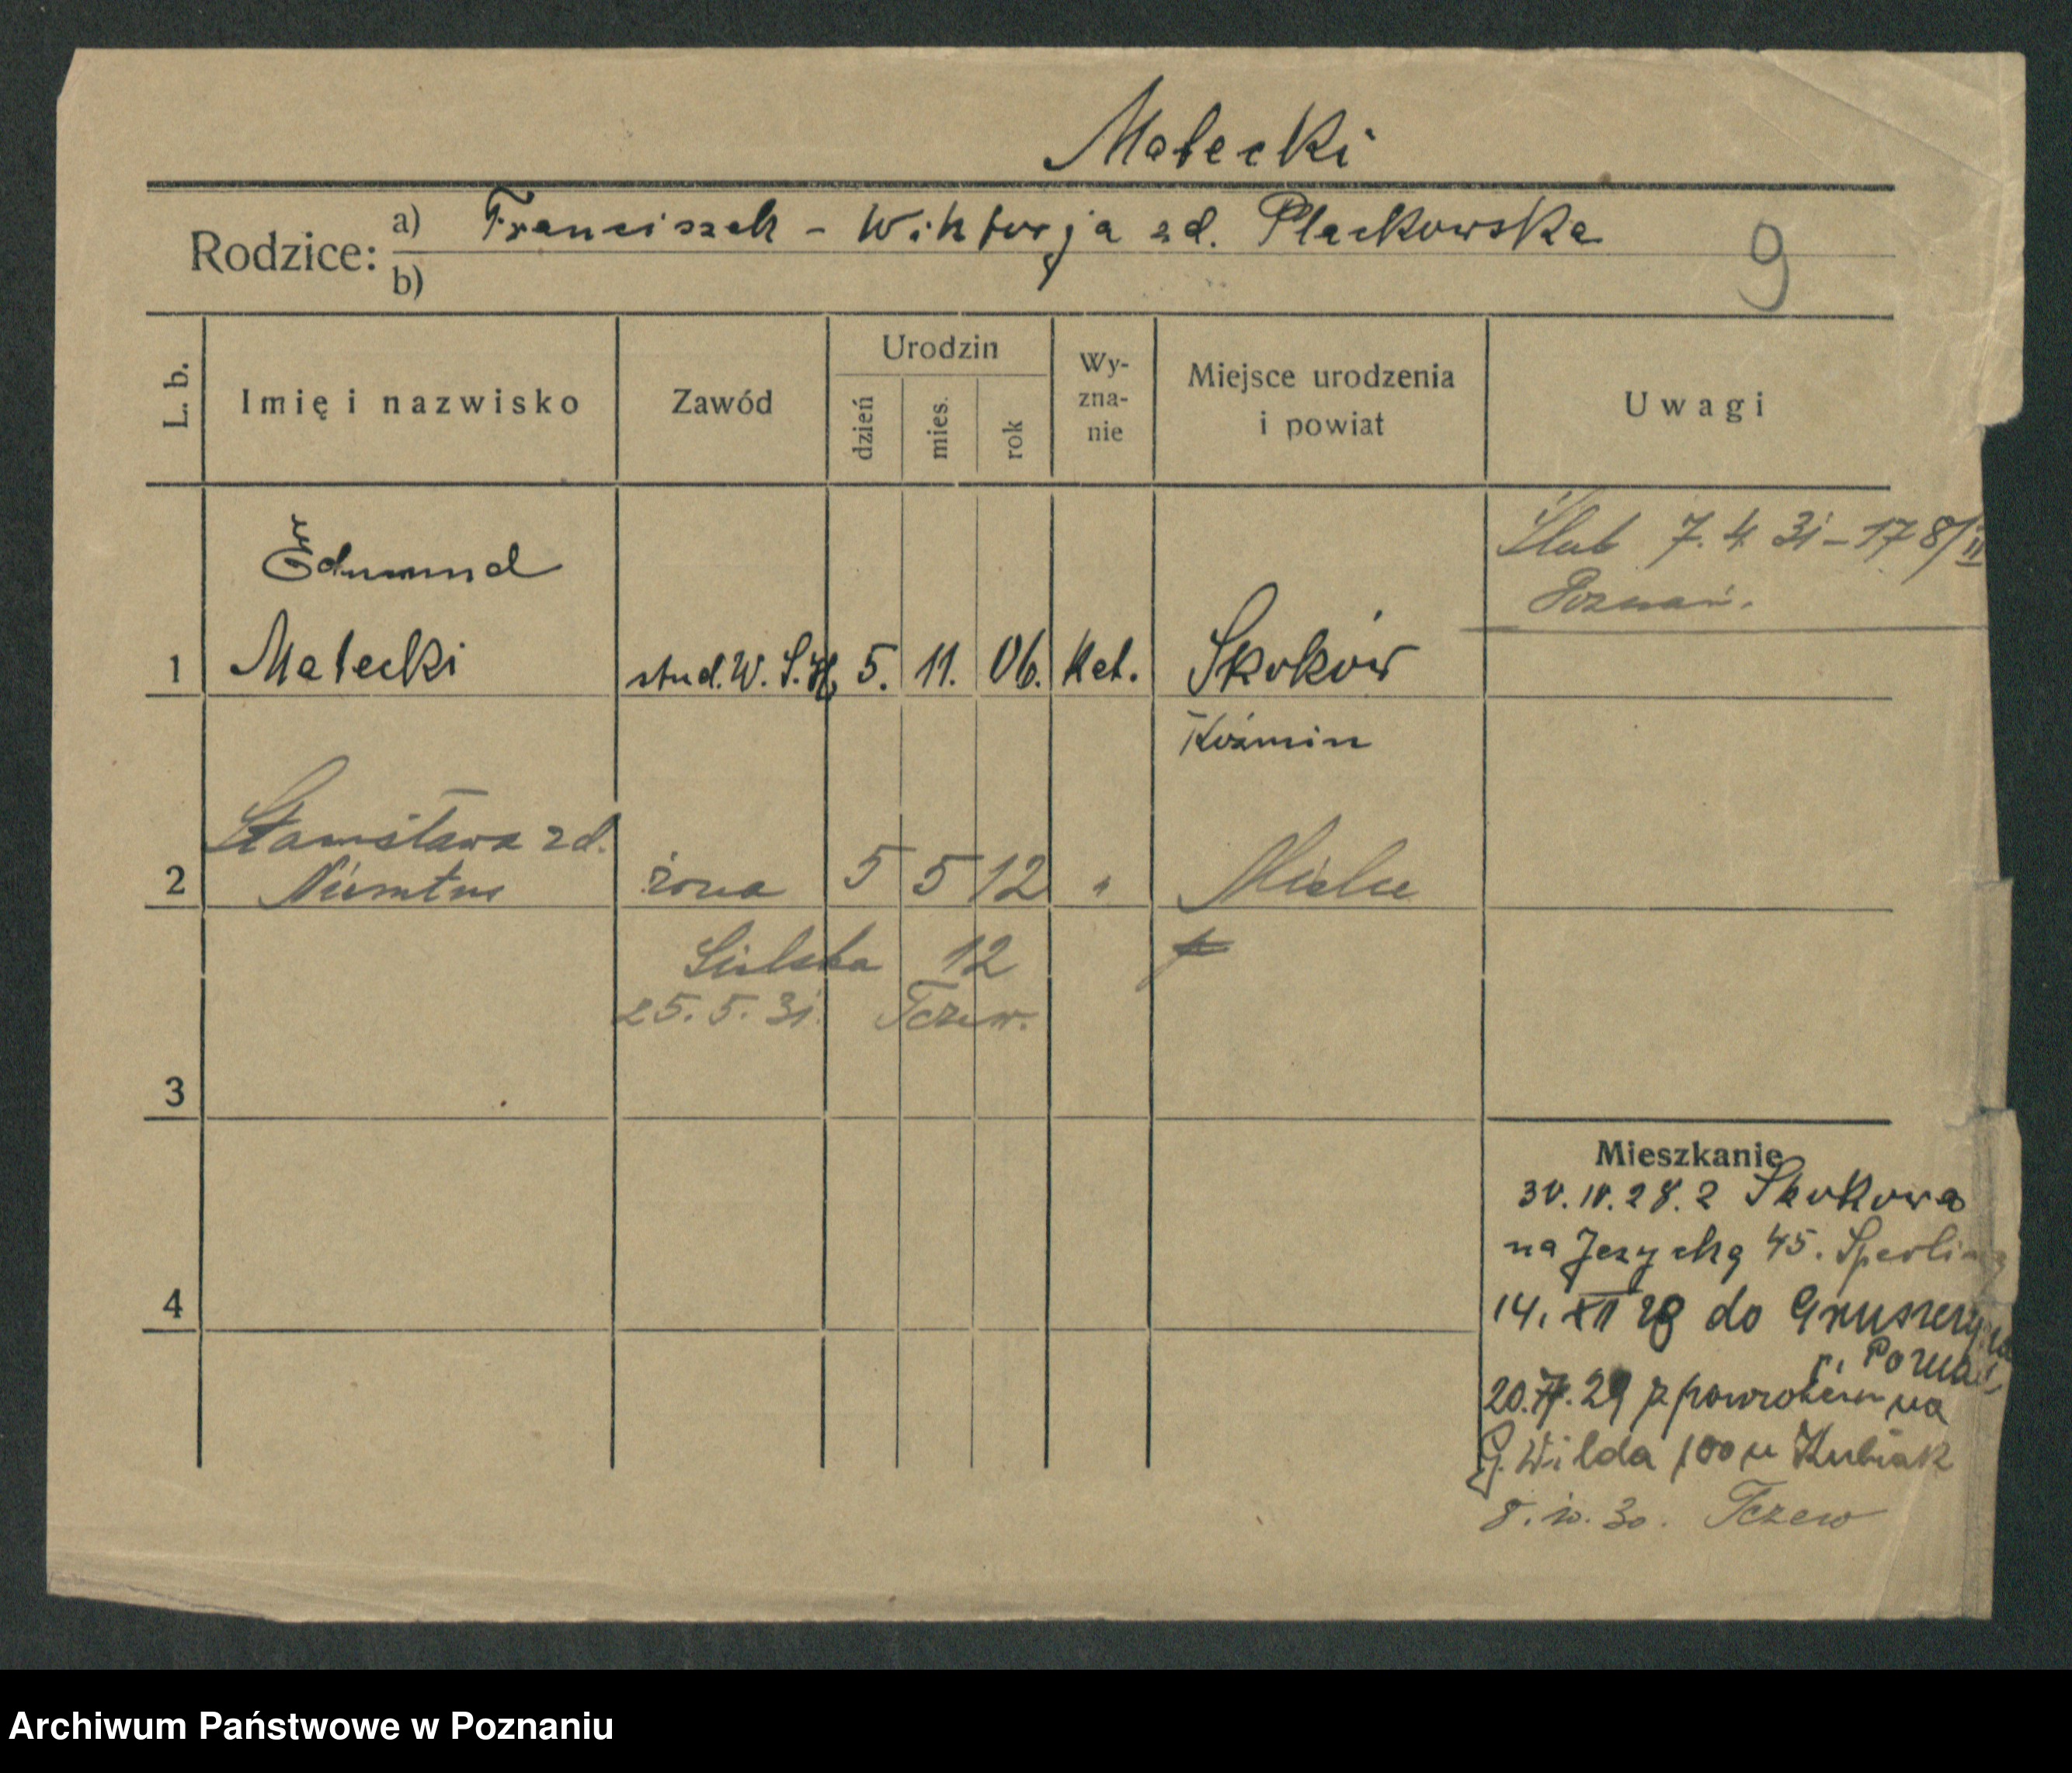 Małecki
Rodzice: a) Franciszek - Wiktorja zd. Plackowska
b)
9
L. b.
Imię i nazwisko
Zawód
Urodzin
dzień
mies.
rok
Wy-
zna-
nie
Miejsce urodzenia
i powiat
Uwagi
Ślub 7. 4. 31 - 178/II
Poznań.
Edmund
1 Małecki stud. W. S. H. 5. 11. 06. kat. Skoków
Koźmin
Stanisława zd.
2 żona 5 5 12 " Mielce
Sielska 12
25. 5. 31. Tczew.
3
4
Mieszkanie
30. IV. 28. z Skokowa
na Jeżycką 45. Sperling
14. XII 28 do Gruszczyna
p. Poznań
20. 29 z powrotem na
G. Wilda 100 u Kubiak
8. 10. 30. Tczew
Archiwum Państwowe w Poznaniu